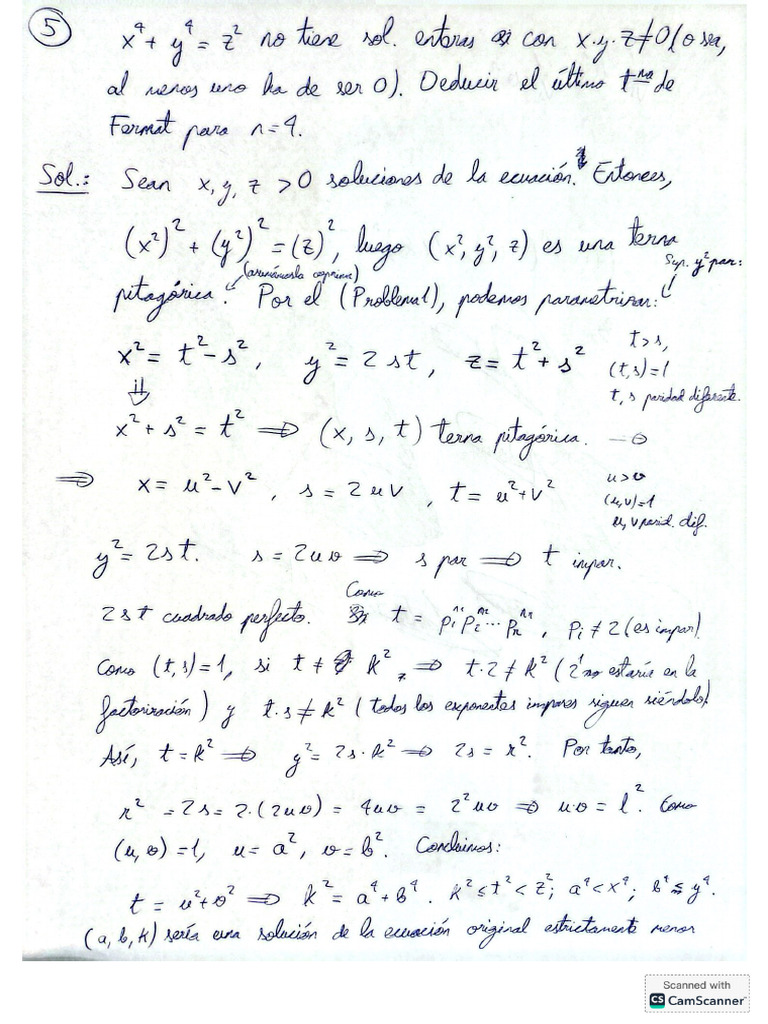 5
x⁴ + y⁴ = z² no tiene sol. enteras con x·y·z≠0 (o sea,
al menos uno ha de ser 0). Deducir el último tma de
Fermat para n=4.
Sol.: Sean x, y, z > 0 soluciones de la ecuación. Entonces,
(x²)² + (y²)² = (z)², luego (x², y², z) es una terna
(asumámosla coprima)
Sup. y² par:
pitagórica. Por el (Problema 1), podemos parametrizar:
x² = t² - s², y² = 2st, z = t² + s²
t>s,
(t,s)=1
t, s paridad diferente.
⇓
x² + s² = t² ⇒ (x, s, t) terna pitagórica.
⇒ x = u² - v², s = 2uv, t = u² + v²
u>v
(u,v)=1
u, v parid. dif.
y² = 2st. s = 2uv ⇒ s par ⇒ t impar.
2st cuadrado perfecto. Como t = p₁ⁿ¹ p₂ⁿ² ... pᵣⁿʳ, pᵢ ≠ 2 (es impar).
Como (t,s)=1, si t ≠ k², ⇒ t·2 ≠ k² (2¹ no estaría en la
factorización) y t·s ≠ k² (todos los exponentes impares siguen siéndolo)
Así, t = k² ⇒ y² = 2s·k² ⇒ 2s = r². Por tanto,
r² = 2s = 2·(2uv) = 4uv = 2²uv ⇒ uv = l². Como
(u,v)=1, u = a², v = b². Concluimos:
t = u² + v² ⇒ k² = a⁴ + b⁴. k² ≤ t² < z²; a⁴ < x⁴; b⁴ ≤ y⁴.
(a, b, k) sería una solución de la ecuación original estrictamente menor
Scanned with
CS CamScanner